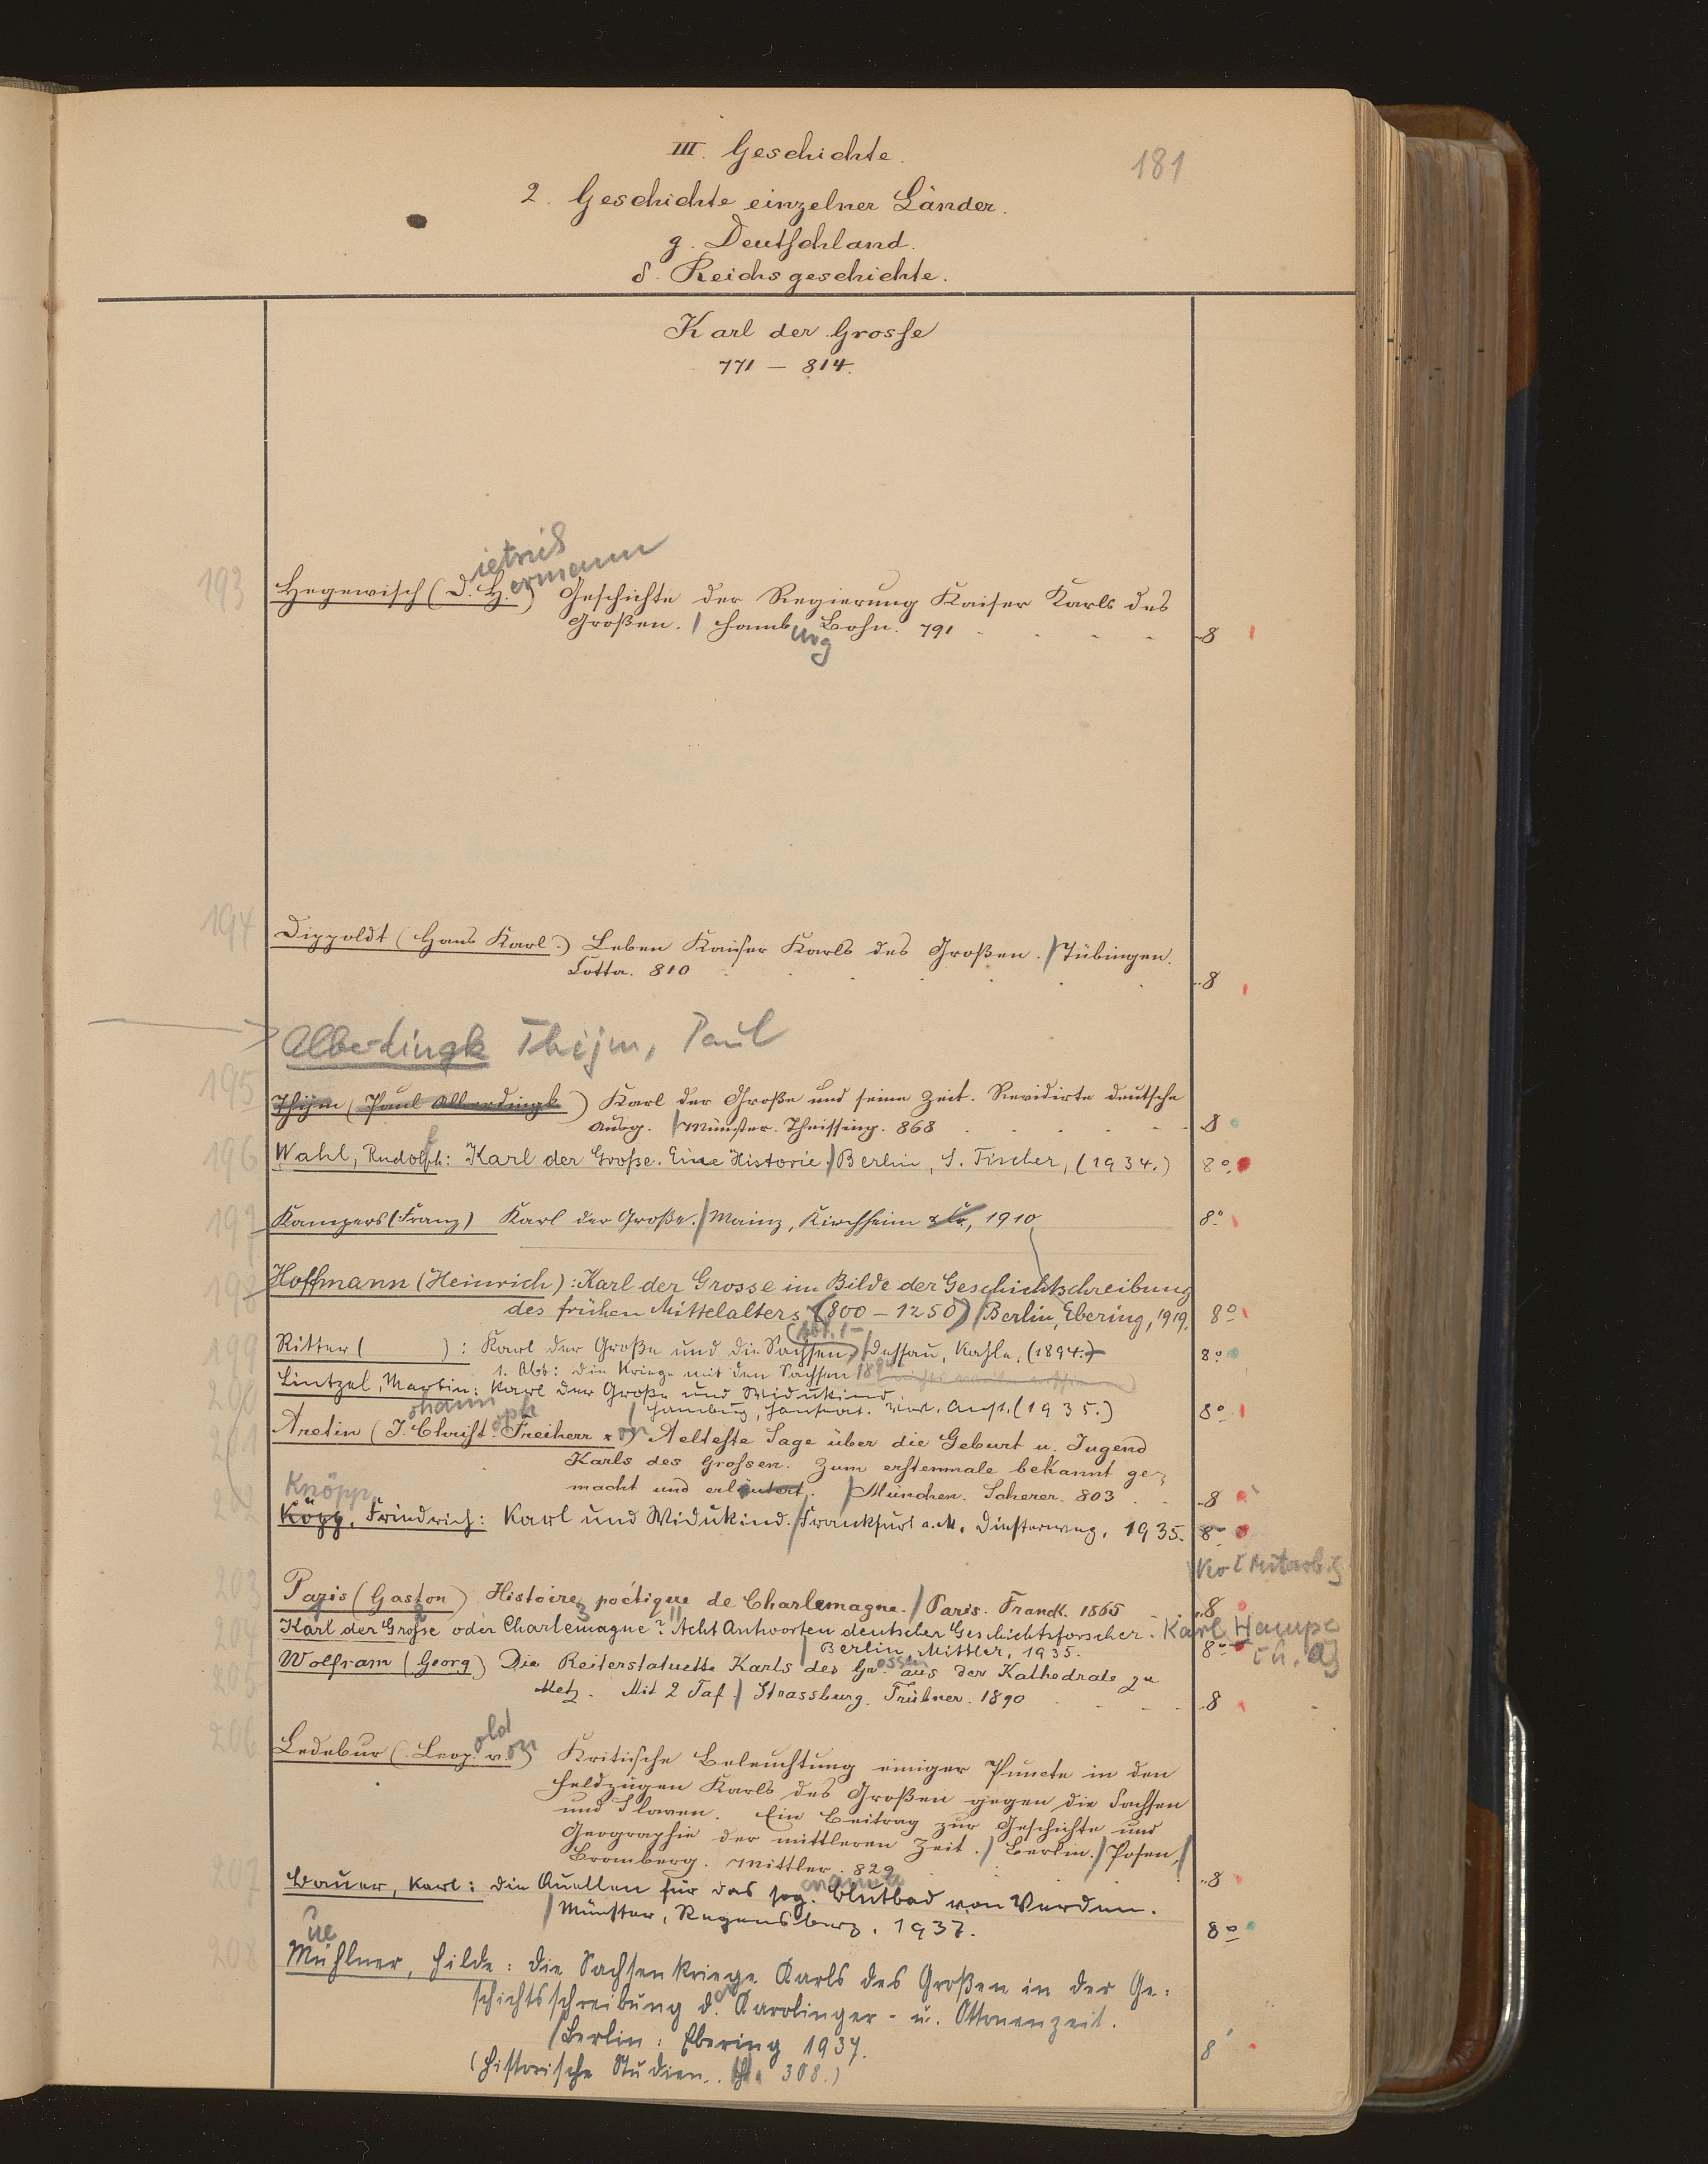 III. Geschichte.
181
2. Geschichte einzelner Länder.
g. Deutschland.
δ. Reichsgeschichte.
Karl der Grosse
771 – 814.
193 Hegewisch (D.ietrich H.ermann) Geschichte der Regierung Kaiser Karls des
Großen. / Hamburg Bohn. 791 8
194 Dippoldt (Hans Karl.) Leben Kaiser Karls des Großen. / Tübingen.
Cotta. 810 8
Alberdingk Thijm, Paul
195 Thijm (Paul Alberdingk) Karl der Große und seine Zeit. Revidirte deutsche
Ausg. / Münster. Theissing. 868 8
196 Wahl, Rudolph: Karl der Große. Eine Historie. / Berlin, S. Fischer, (1934.) 8°
197 Kampers (Franz) Karl der Große. / Mainz, Kirchheim & Co, 1910 8°
198 Hoffmann (Heinrich): Karl der Grosse im Bilde der Geschichtschreibung
des frühen Mittelalters (800 – 1250) / Berlin, Ebering, 1919. 8°
(Abt. 1-
199 Ritter ( ): Karl der Große und die Sachsen / Dessau, Kahle, (1894.) 8°
1. Abt: Die Kriege mit den Sachsen
200 Lintzel, Martin: Karl der Große und Widukind.
/ Hamburg, Hanseat. Verl. Anst. (1935.) 8°
201 Aretin (J.ohann Christoph Freiherr von) Aelteste Sage über die Geburt u. Jugend
Karls des Grossen. Zum erstenmale bekannt ge-
macht und erläutert. / München. Scherer. 803 8
Knöpp,
202 Köpp, Friedrich: Karl und Widukind. / Frankfurt a. M. Diesterweg, 1935. 8°
203 Paris (Gaston) Histoire poétique de Charlemagne. / Paris. Franck. 1865 8
204 Karl der Große oder Charlemagne? Acht Antworten deutscher Geschichtsforscher. Karl Hampe
/ Berlin, Mittler, 1935. 8°
205 Wolfram (Georg) Die Reiterstatuette Karls des Grossen aus der Kathedrale zu
Metz. Mit 2 Taf. / Strassburg. Trübner. 1890 8
206 Ledebur (Leopold von) Kritische Beleuchtung einiger Puncte in den
Feldzügen Karls des Großen gegen die Sachsen
und Slaven. Ein Beitrag zur Geschichte und
Geographie der mittleren Zeit. / Berlin. / Posen, /
Bromberg. Mittler. 829 8
207 Bauer, Karl: Die Quellen für das sog. Blutbad von Verden.
/ Münster, Regensberg. 1937. 8°
ue
208 Mühlner, Hilde: Die Sachsenkriege Karls des Großen in der Ge-
schichtsschreibung der Karolinger- u. Ottonenzeit.
/ Berlin: Ebering 1937. 8°
(Historische Studien. H. 308.)